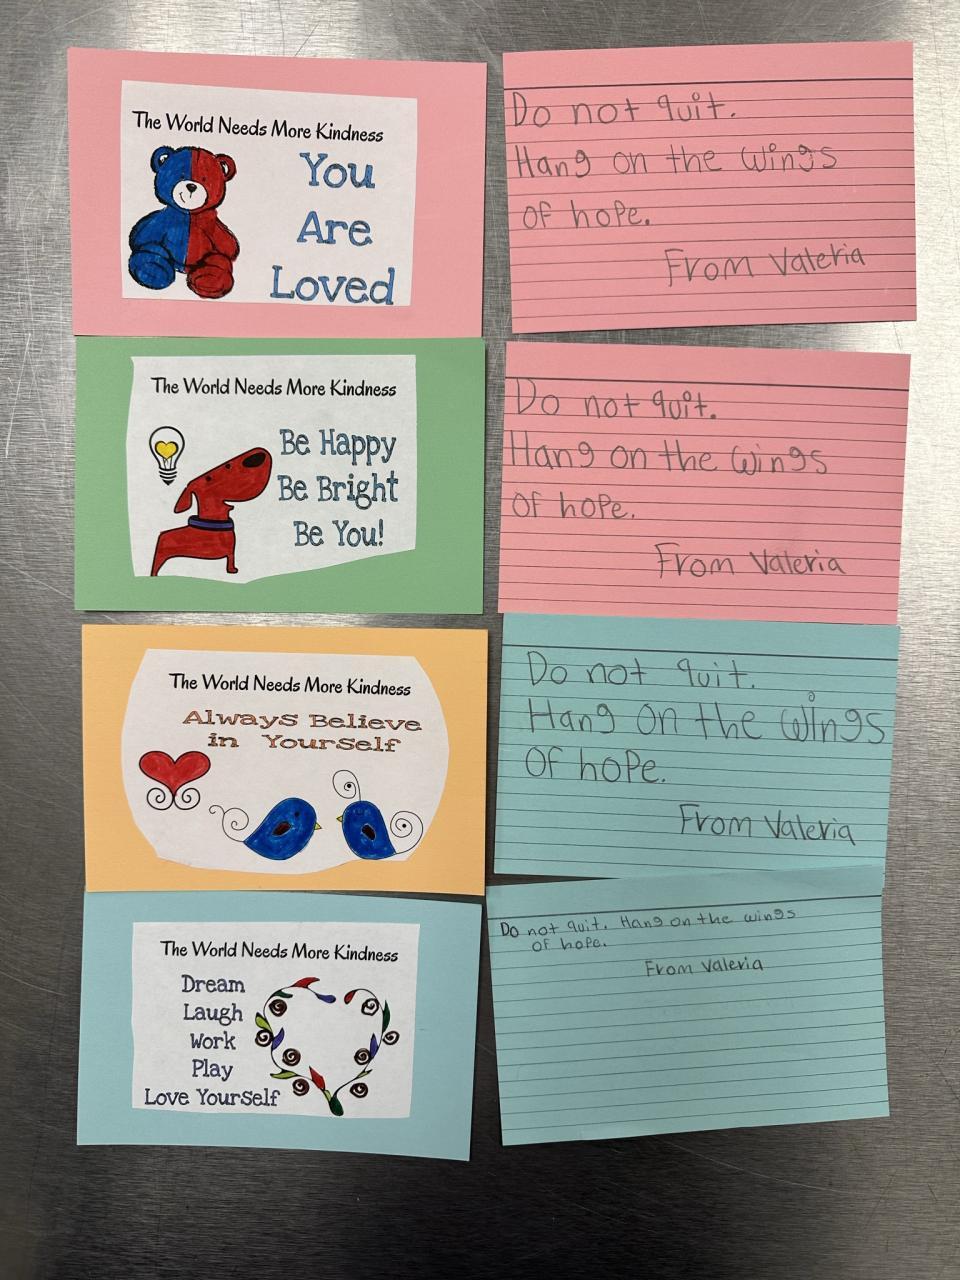 The World Needs More Kindness
You
Are
Loved
Do not quit.
Hang on the wings
of hope.
From Valeria
The World Needs More Kindness
Be Happy
Be Bright
Be You!
Do not quit.
Hang on the wings
of hope.
From Valeria
The World Needs More Kindness
Always Believe
in Yourself
Do not quit.
Hang on the wings
of hope.
From Valeria
The World Needs More Kindness
Dream
Laugh
Work
Play
Love Yourself
Do not quit. Hang on the wings
of hope.
From Valeria